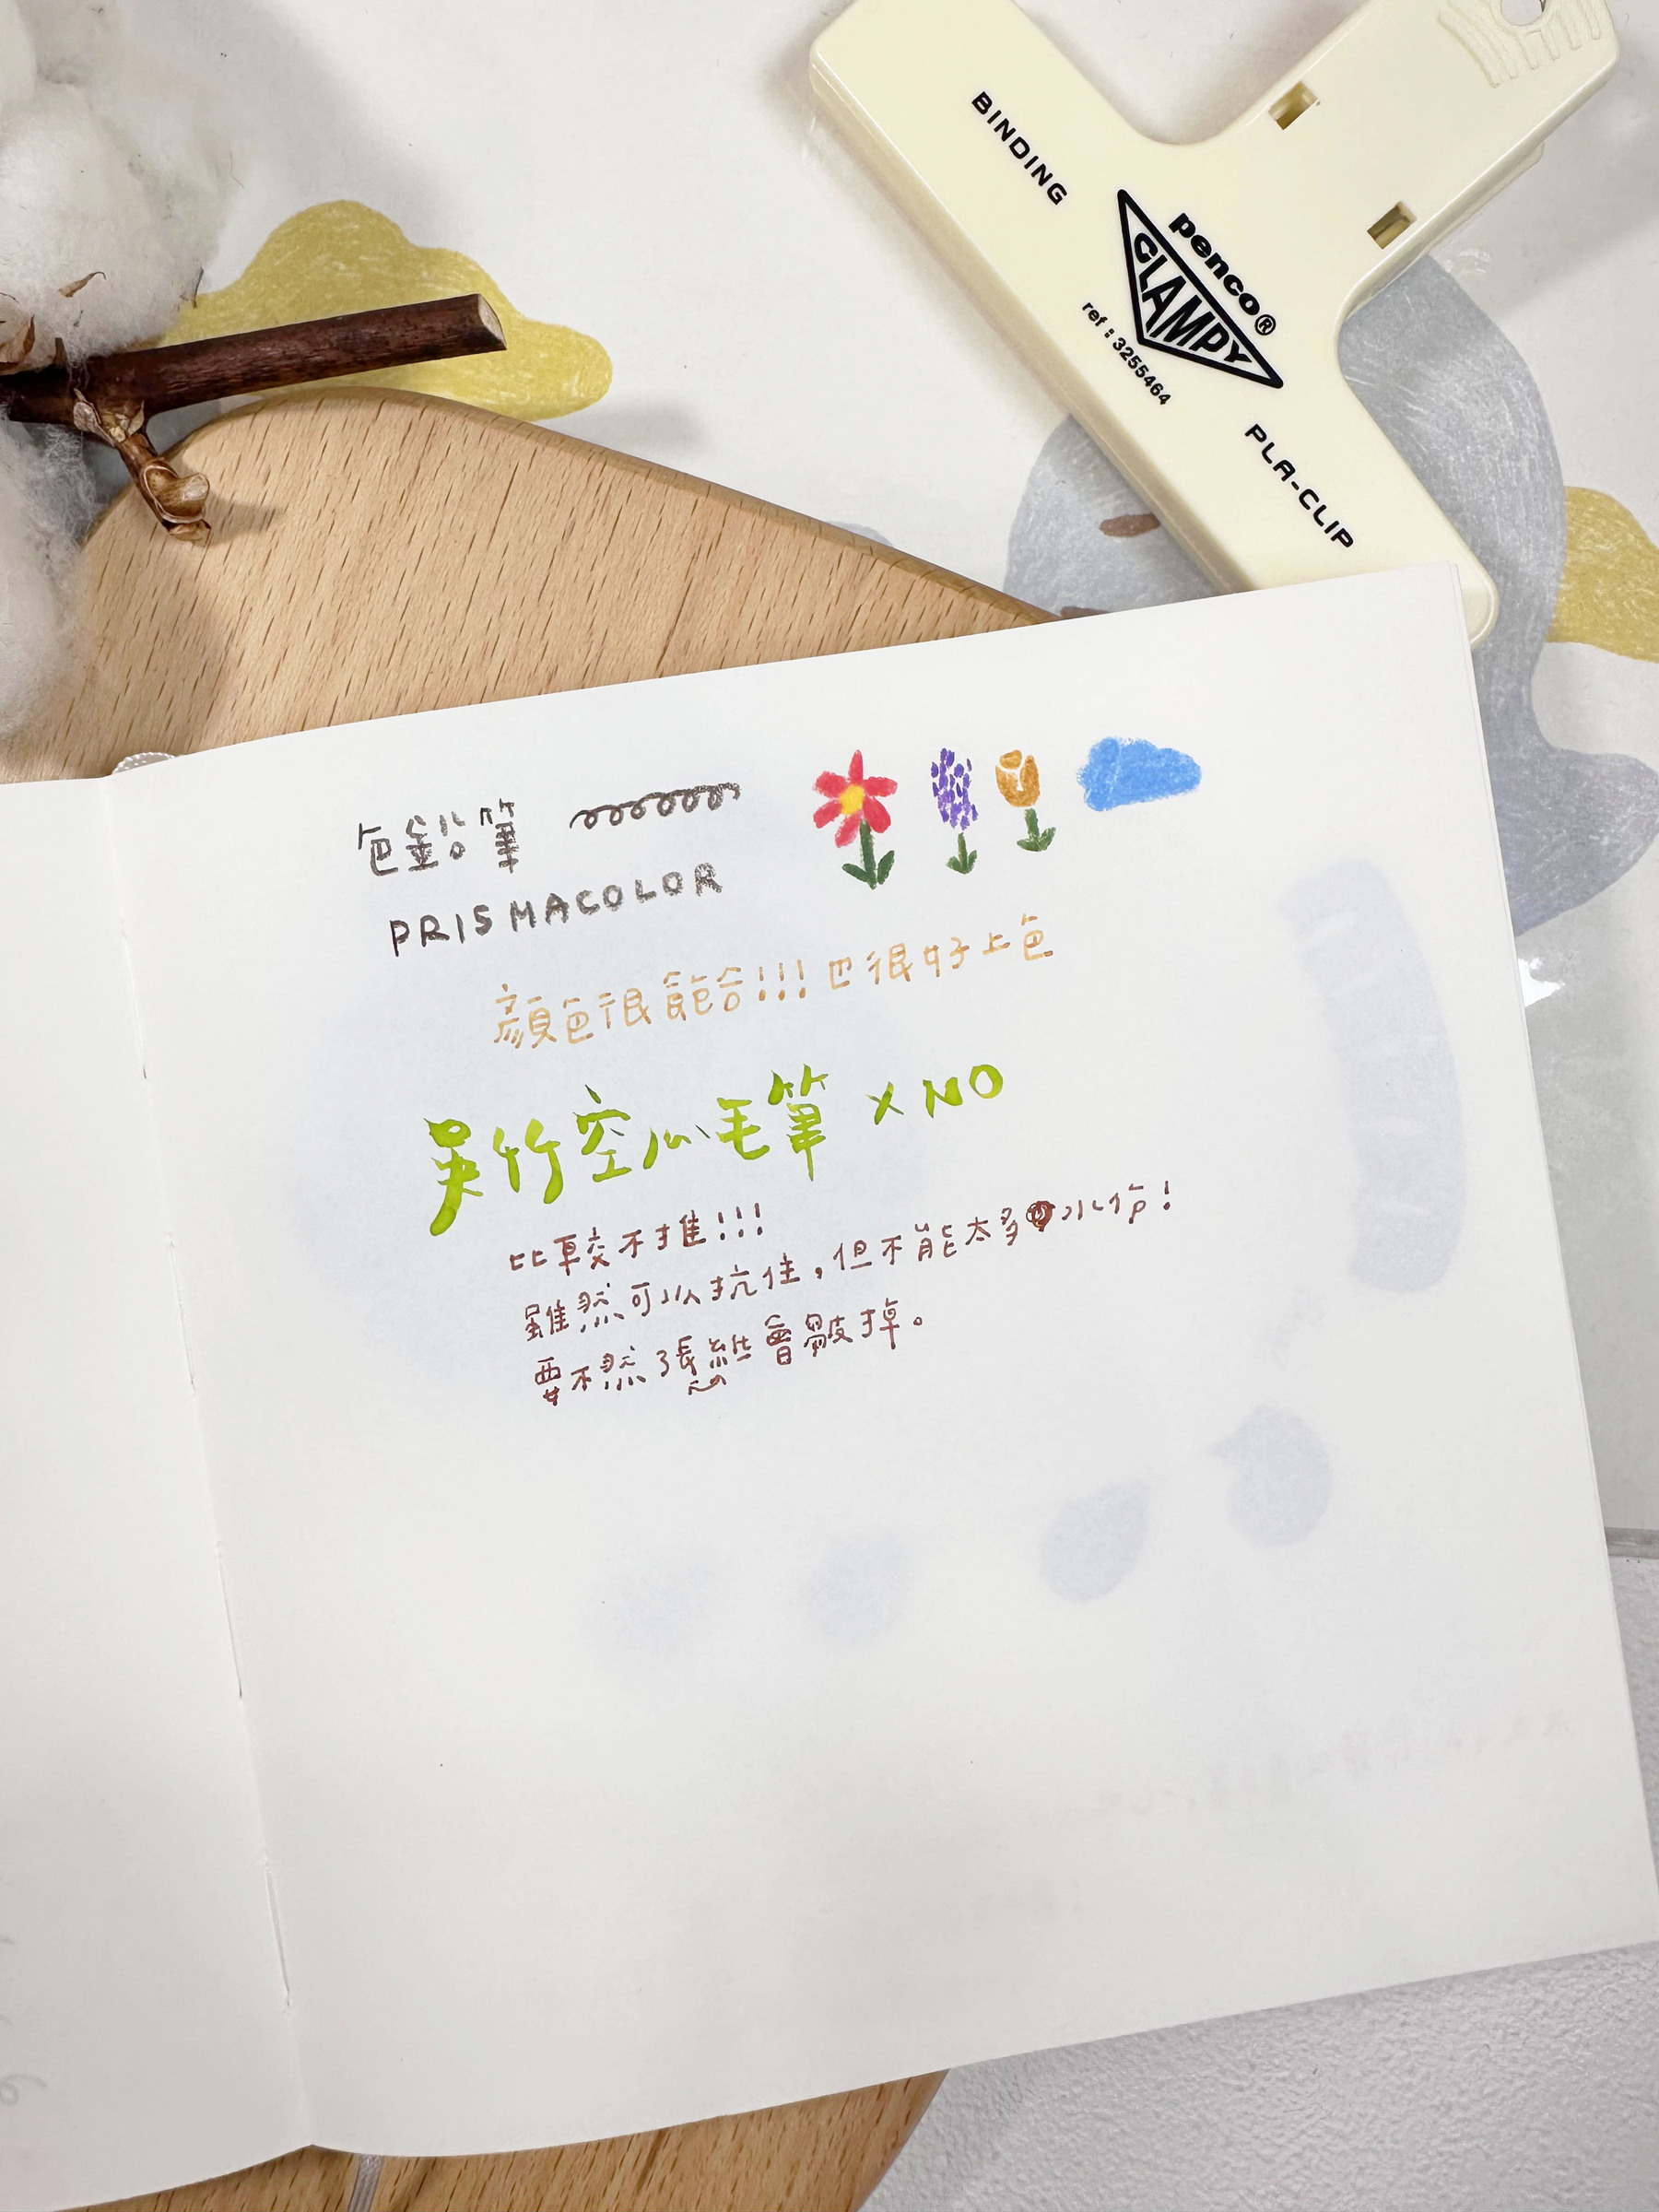 BINDING
penco®
CLAMPY
ref : 3255464
PLA-CLIP
色鉛筆
PRISMACOLOR
顏色很飽合!!! 也很好上色
吳竹空心毛筆 x NO
比較不推!!!
雖然可以抗住，但不能太多水份!
要不然張態會皺掉。